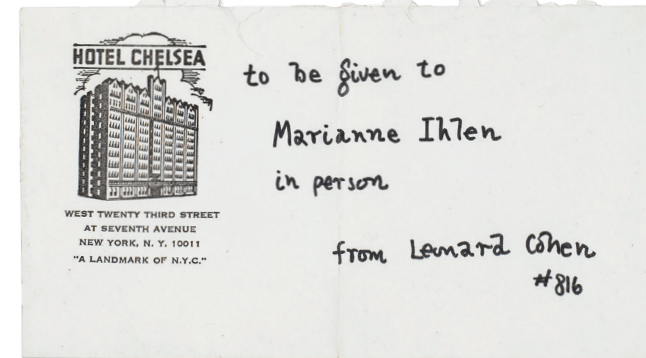 HOTEL CHELSEA
WEST TWENTY THIRD STREET
AT SEVENTH AVENUE
NEW YORK, N. Y. 10011
"A LANDMARK OF N.Y.C."
to be given to
Marianne Ihlen
in person
from Leonard Cohen
#816